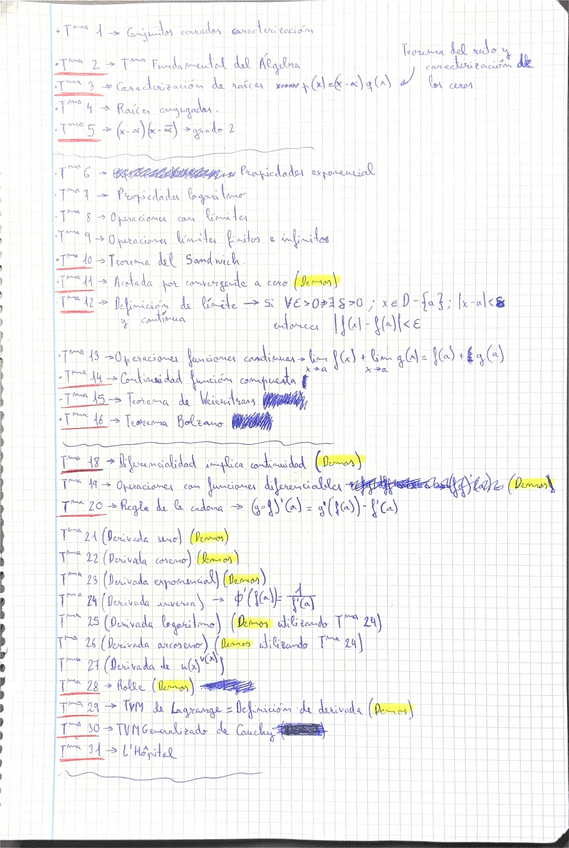 · Tma 1 → Conjuntos cerrados caracterización
· Tma 2 → Tma Fundamental del Álgebra
Teorema del resto y
caracterización de
los ceros
· Tma 3 → Caracterización de raíces p(x)=(x-α)q(x)
· Tma 4 → Raíces conjugadas.
· Tma 5 → (x-α)(x-ᾱ) → grado 2
· Tma 6 → Propiedades exponencial
· Tma 7 → Propiedades logaritmo
· Tma 8 → Operaciones con límites
· Tma 9 → Operaciones límites finitos e infinitos
· Tma 10 → Teorema del Sandwich.
· Tma 11 → Acotada por convergente a cero (Demos)
· Tma 12 → Definición de límite → Si ∀ε>0 ∃ δ>0 ; x∈D-{a} ; |x-a|<δ
y continua entonces |f(x)-f(a)|<ε
· Tma 13 → Operaciones funciones continuas → lim x→a f(x) + lim x→a g(x) = f(a) + g(a)
· Tma 14 → Continuidad función compuesta
· Tma 15 → Teorema de Weierstrass
· Tma 16 → Teorema Bolzano
Tma 18 → Diferencialidad implica continuidad (Demos)
Tma 19 → Operaciones con funciones diferenciables (Demos)
Tma 20 → Regla de la cadena → (g∘f)'(a) = g'(f(a))·f'(a)
Tma 21 (Derivada seno) (Demos)
Tma 22 (Derivada coseno) (Demos)
Tma 23 (Derivada exponencial) (Demos)
Tma 24 (Derivada inversa) → ϕ'(f(a)) = 1/f'(a)
Tma 25 (Derivada logaritmo) (Demos utilizando Tma 24)
Tma 26 (Derivada arcoseno) (Demos utilizando Tma 24)
Tma 27 (Derivada de u(x)^v(x))
Tma 28 → Rolle (Demos)
Tma 29 → TVM de Lagrange = Definición de derivada (Demos)
Tma 30 → TVM Generalizado de Cauchy
Tma 31 → L'Hôpital